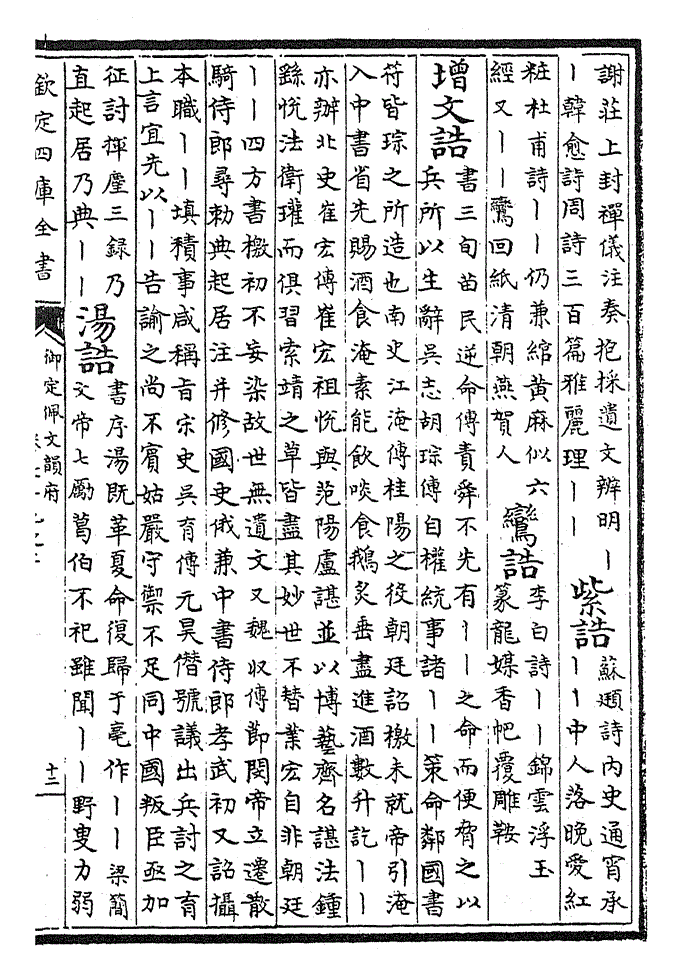 謝莊上封禪儀注奏抱採遺文辨明丨
丨韓愈詩周詩三百篇雅麗理丨丨
紫誥
蘇頲詩內史通宵承
丨丨中人落晚愛紅
粧杜甫詩丨丨仍兼綰黃麻似六
經又丨丨鸞回紙清朝燕賀人
鸞誥
李白詩丨丨錦雲浮玉
篆龍媒香帊覆雕鞍
增文誥
書三旬苗民逆命傳責舜不先有丨丨之命而便脅之以
兵所以生辭吳志胡琮傳自權統事諸丨丨策命鄰國書
符皆琮之所造也南史江淹傳桂陽之役朝廷詔檄未就帝引淹
入中書省先賜酒食淹素能飲啖食鵝炙垂盡進酒數升訖丨丨
亦辦北史崔宏傳崔宏祖悅與范陽盧諶並以博藝齊名諶法鍾
繇悅法衛瓘而俱習索靖之草皆盡其妙世不替業宏自非朝廷
丨丨四方書檄初不妄染故世無遺文又魏收傳節閔帝立遷散
騎侍郎尋勅典起居注并修國史俄兼中書侍郎孝武初又詔攝
本職丨丨填積事咸稱旨宋史吳育傳元昊僭號議出兵討之育
上言宜先以丨丨告諭之尚不賓姑嚴守禦不足同中國叛臣亟加
征討揮麈三録乃
直起居乃典丨丨
湯誥
書序湯既革夏命復歸于亳作丨丨梁簡
文帝七勵葛伯不祀雖聞丨丨野叟力弱
欽定四庫全書
御定佩文韻府
十二